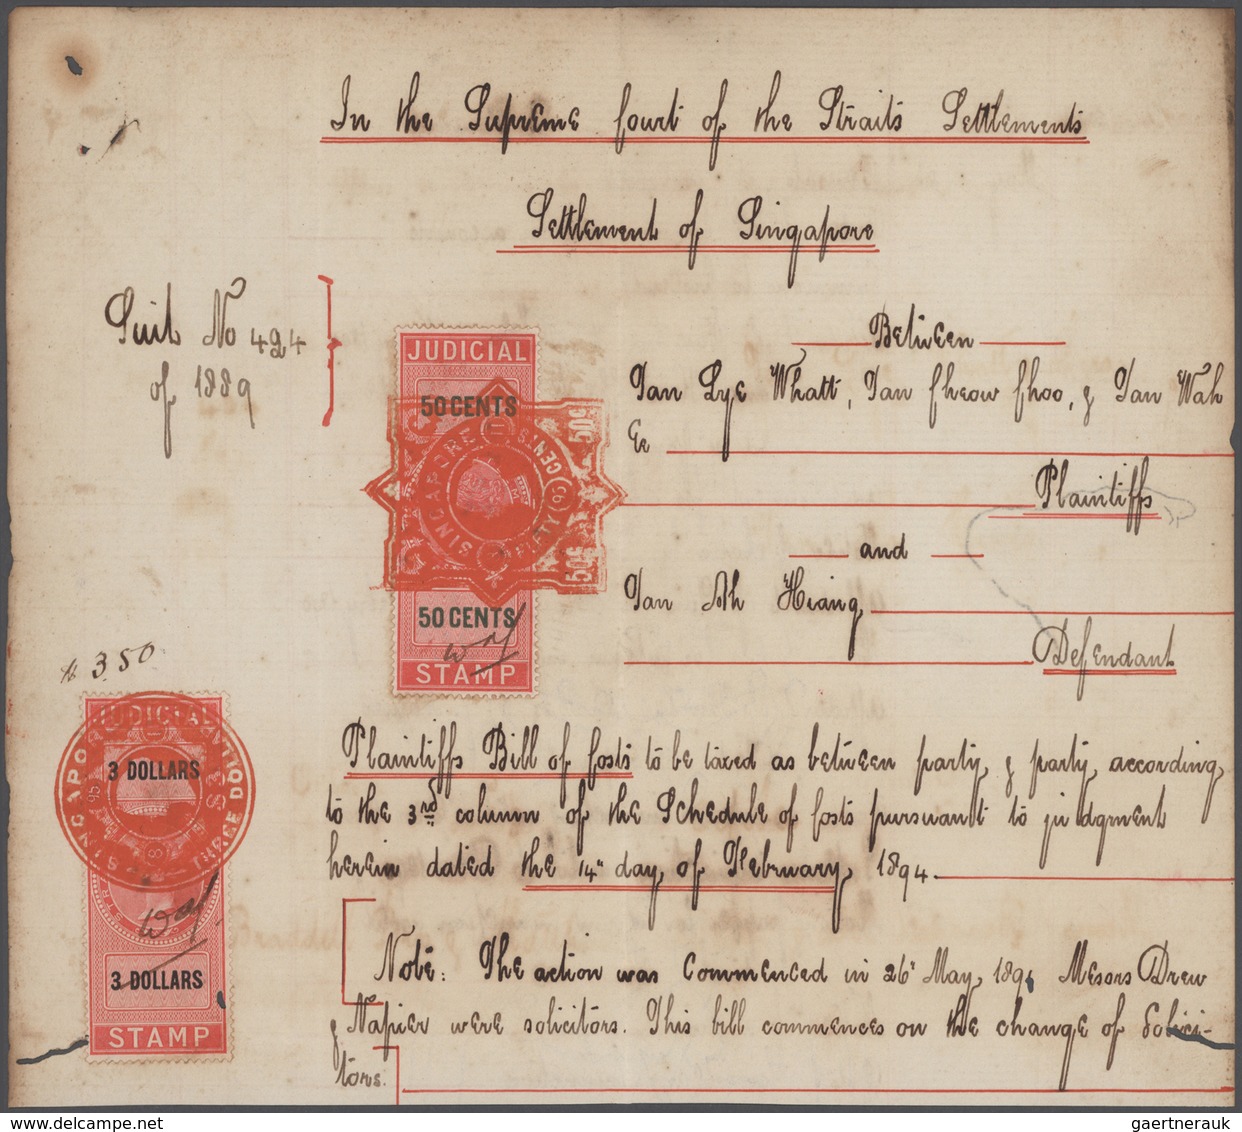 In the Supreme Court of the Straits Settlements
Settlement of Singapore
Suit No 424
of 1889
Between
Tan Lye Whatt, Tan Cheow Choo, & Tan Wah
Ee
Plaintiffs
and
Tan Ah Hiang
Defendant
JUDICIAL
50 CENTS
SINGAPORE
FIFTY CENTS
50c
50c
50 CENTS
STAMP
$ 3.50
JUDICIAL
3 DOLLARS
SINGAPORE
THREE DO
3 DOLLARS
STAMP
Plaintiffs Bill of Costs to be taxed as between party & party, according
to the 3rd column of the Schedule of Costs pursuant to judgment
herein dated the 14" day of February 1894.
Note: The action was commenced in 26 May, 189 Messrs Drew
& Napier were solicitors. This bill commences on the change of Solici-
tors.
gaertnerauk